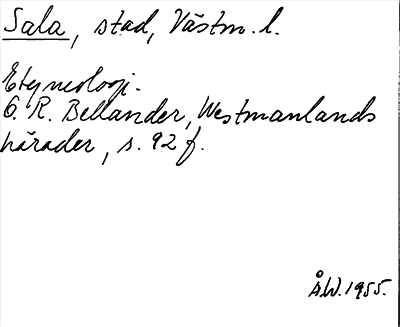 Sala, stad, Västm. l.
Etymologi.
G. R. Bellander, Westmanlands
härader, s. 92 f.
Å.W. 1955.